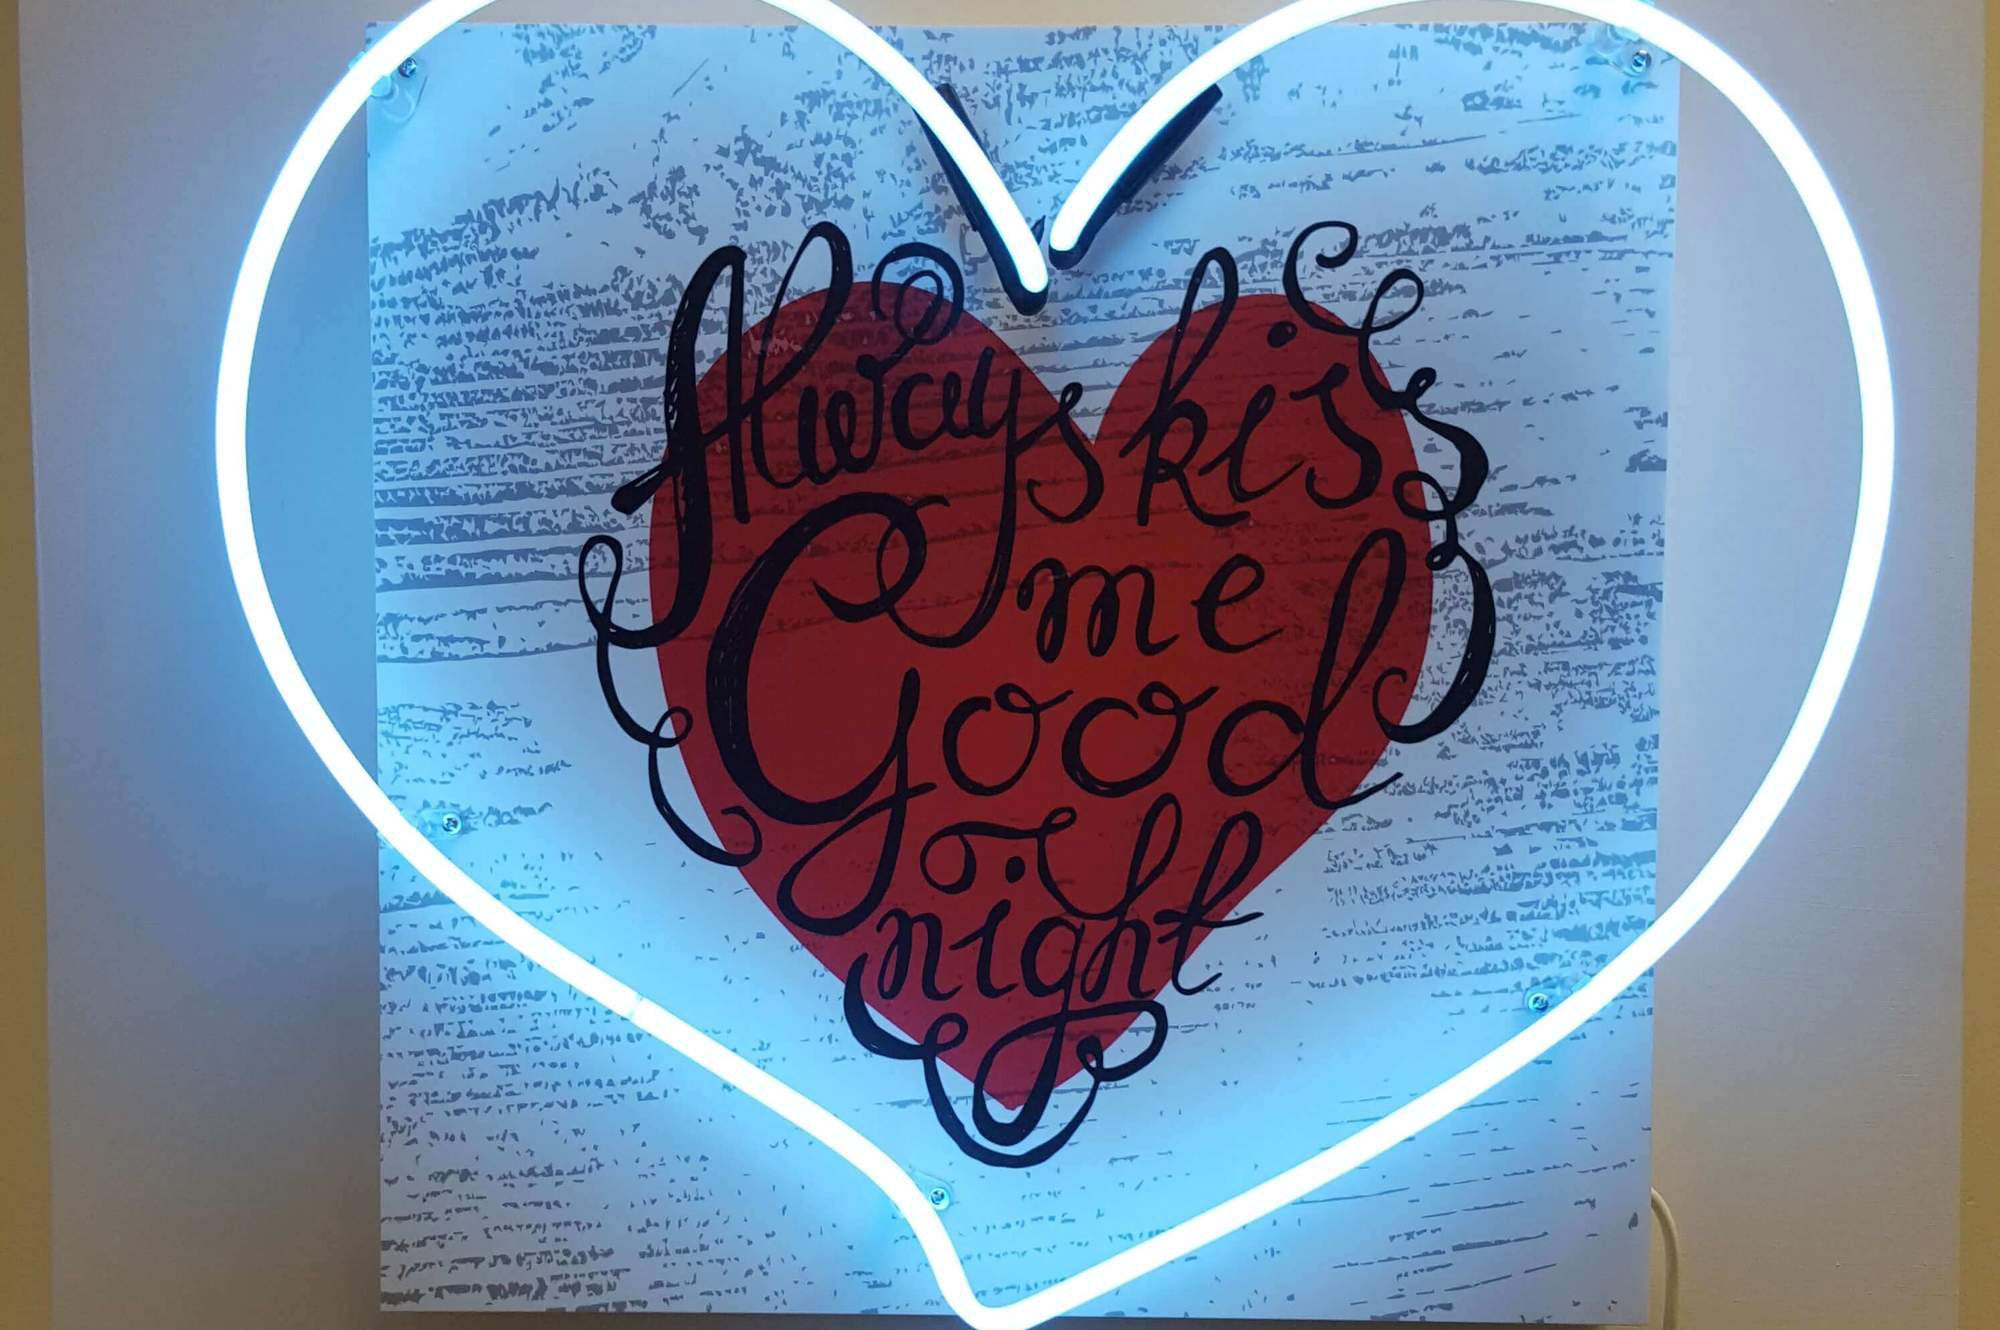 Always kiss
me
Good
night